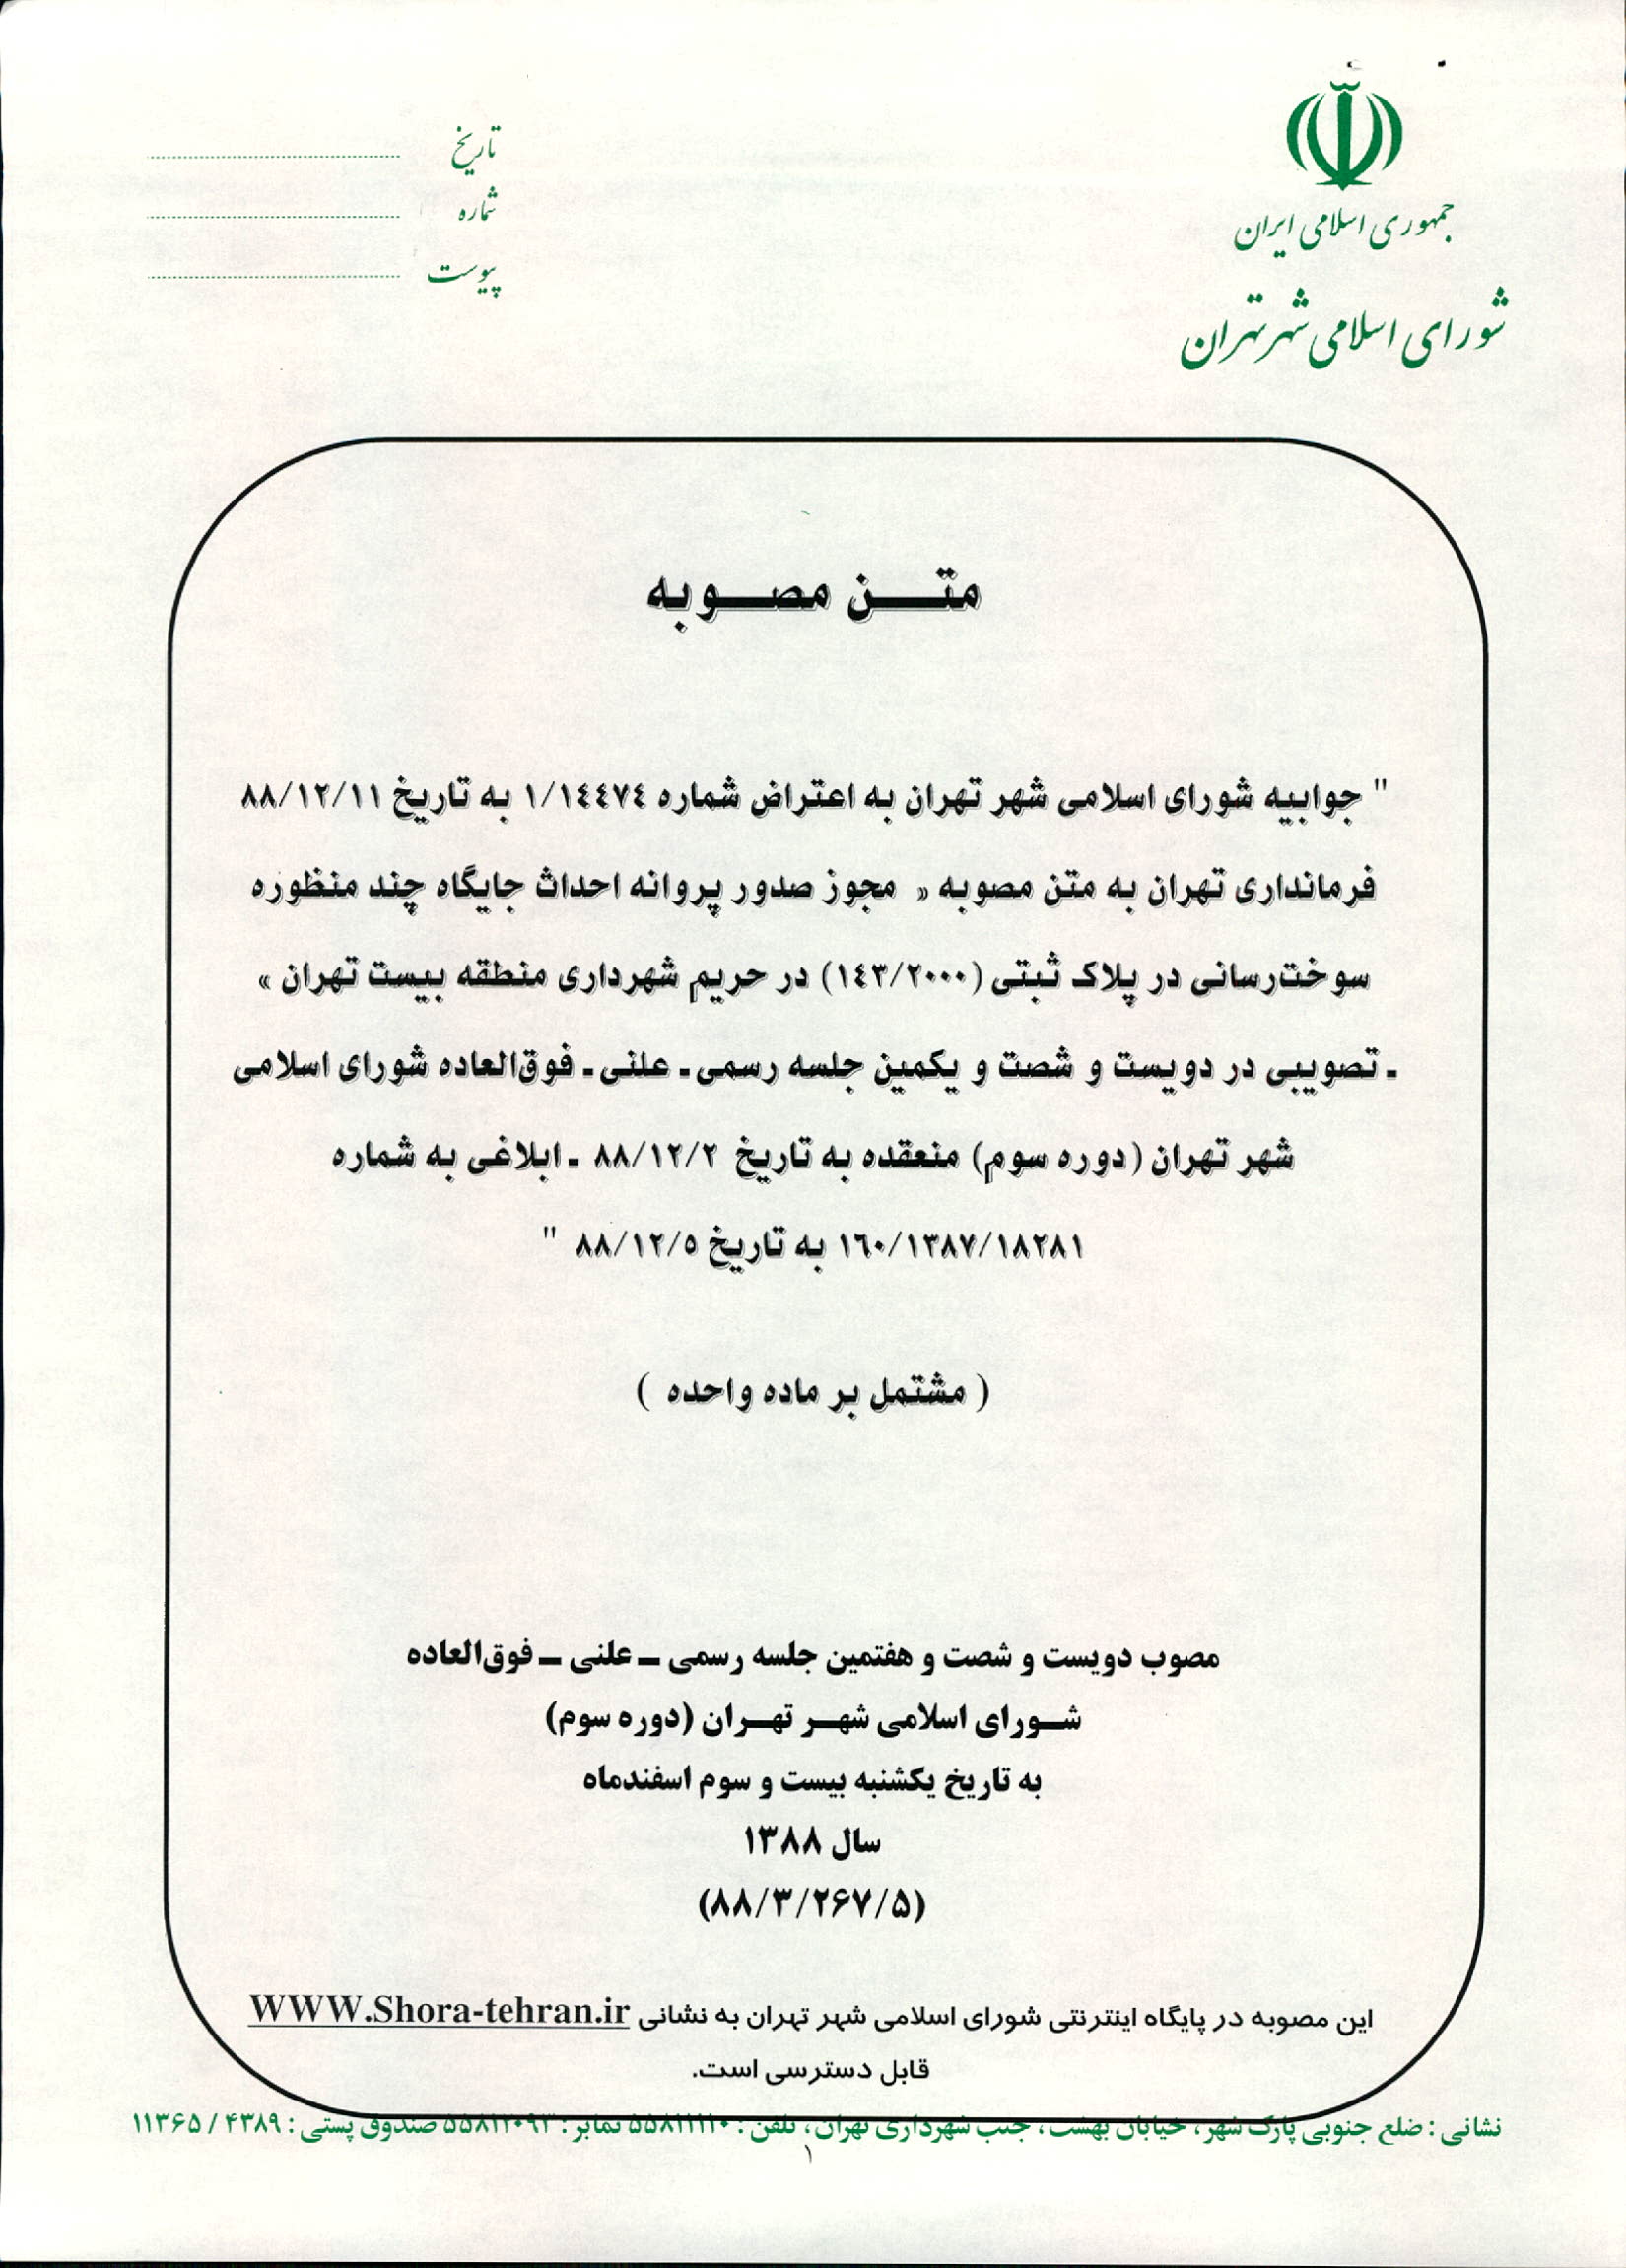 جمهوری اسلامی ایران
شورای اسلامی شهر تهران
تاریخ
شماره
پیوست
متن مصوبه
" جوابیه شورای اسلامی شهر تهران به اعتراض شماره ۱/۱٤٤۷٤ به تاریخ ۸۸/۱۲/۱۱
فرمانداری تهران به متن مصوبه « مجوز صدور پروانه احداث جایگاه چند منظوره
سوخت‌رسانی در پلاک ثبتی (۱٤۳/۲۰۰۰) در حریم شهرداری منطقه بیست تهران »
ـ تصویبی در دویست و شصت و یکمین جلسه رسمی ـ علنی ـ فوق‌العاده شورای اسلامی
شهر تهران (دوره سوم) منعقده به تاریخ ۸۸/۱۲/۲ ـ ابلاغی به شماره
۱٦۰/۱۳۸۷/۱۸۲۸۱ به تاریخ ۸۸/۱۲/۵ "
( مشتمل بر ماده واحده )
مصوب دویست و شصت و هفتمین جلسه رسمی ــ علنی ــ فوق‌العاده
شورای اسلامی شهر تهران (دوره سوم)
به تاریخ یکشنبه بیست و سوم اسفندماه
سال ۱۳۸۸
(۸۸/۳/۲۶۷/۵)
این مصوبه در پایگاه اینترنتی شورای اسلامی شهر تهران به نشانی WWW.Shora-tehran.ir
قابل دسترسی است.
نشانی : ضلع جنوبی پارک شهر، خیابان بهشت، جنب شهرداری تهران، تلفن : ۵۵۸۱۱۱۱۰ نمابر : ۵۵۸۱۲۰۹۳ صندوق پستی : ۴۳۸۹ / ۱۱۳۶۵
۱